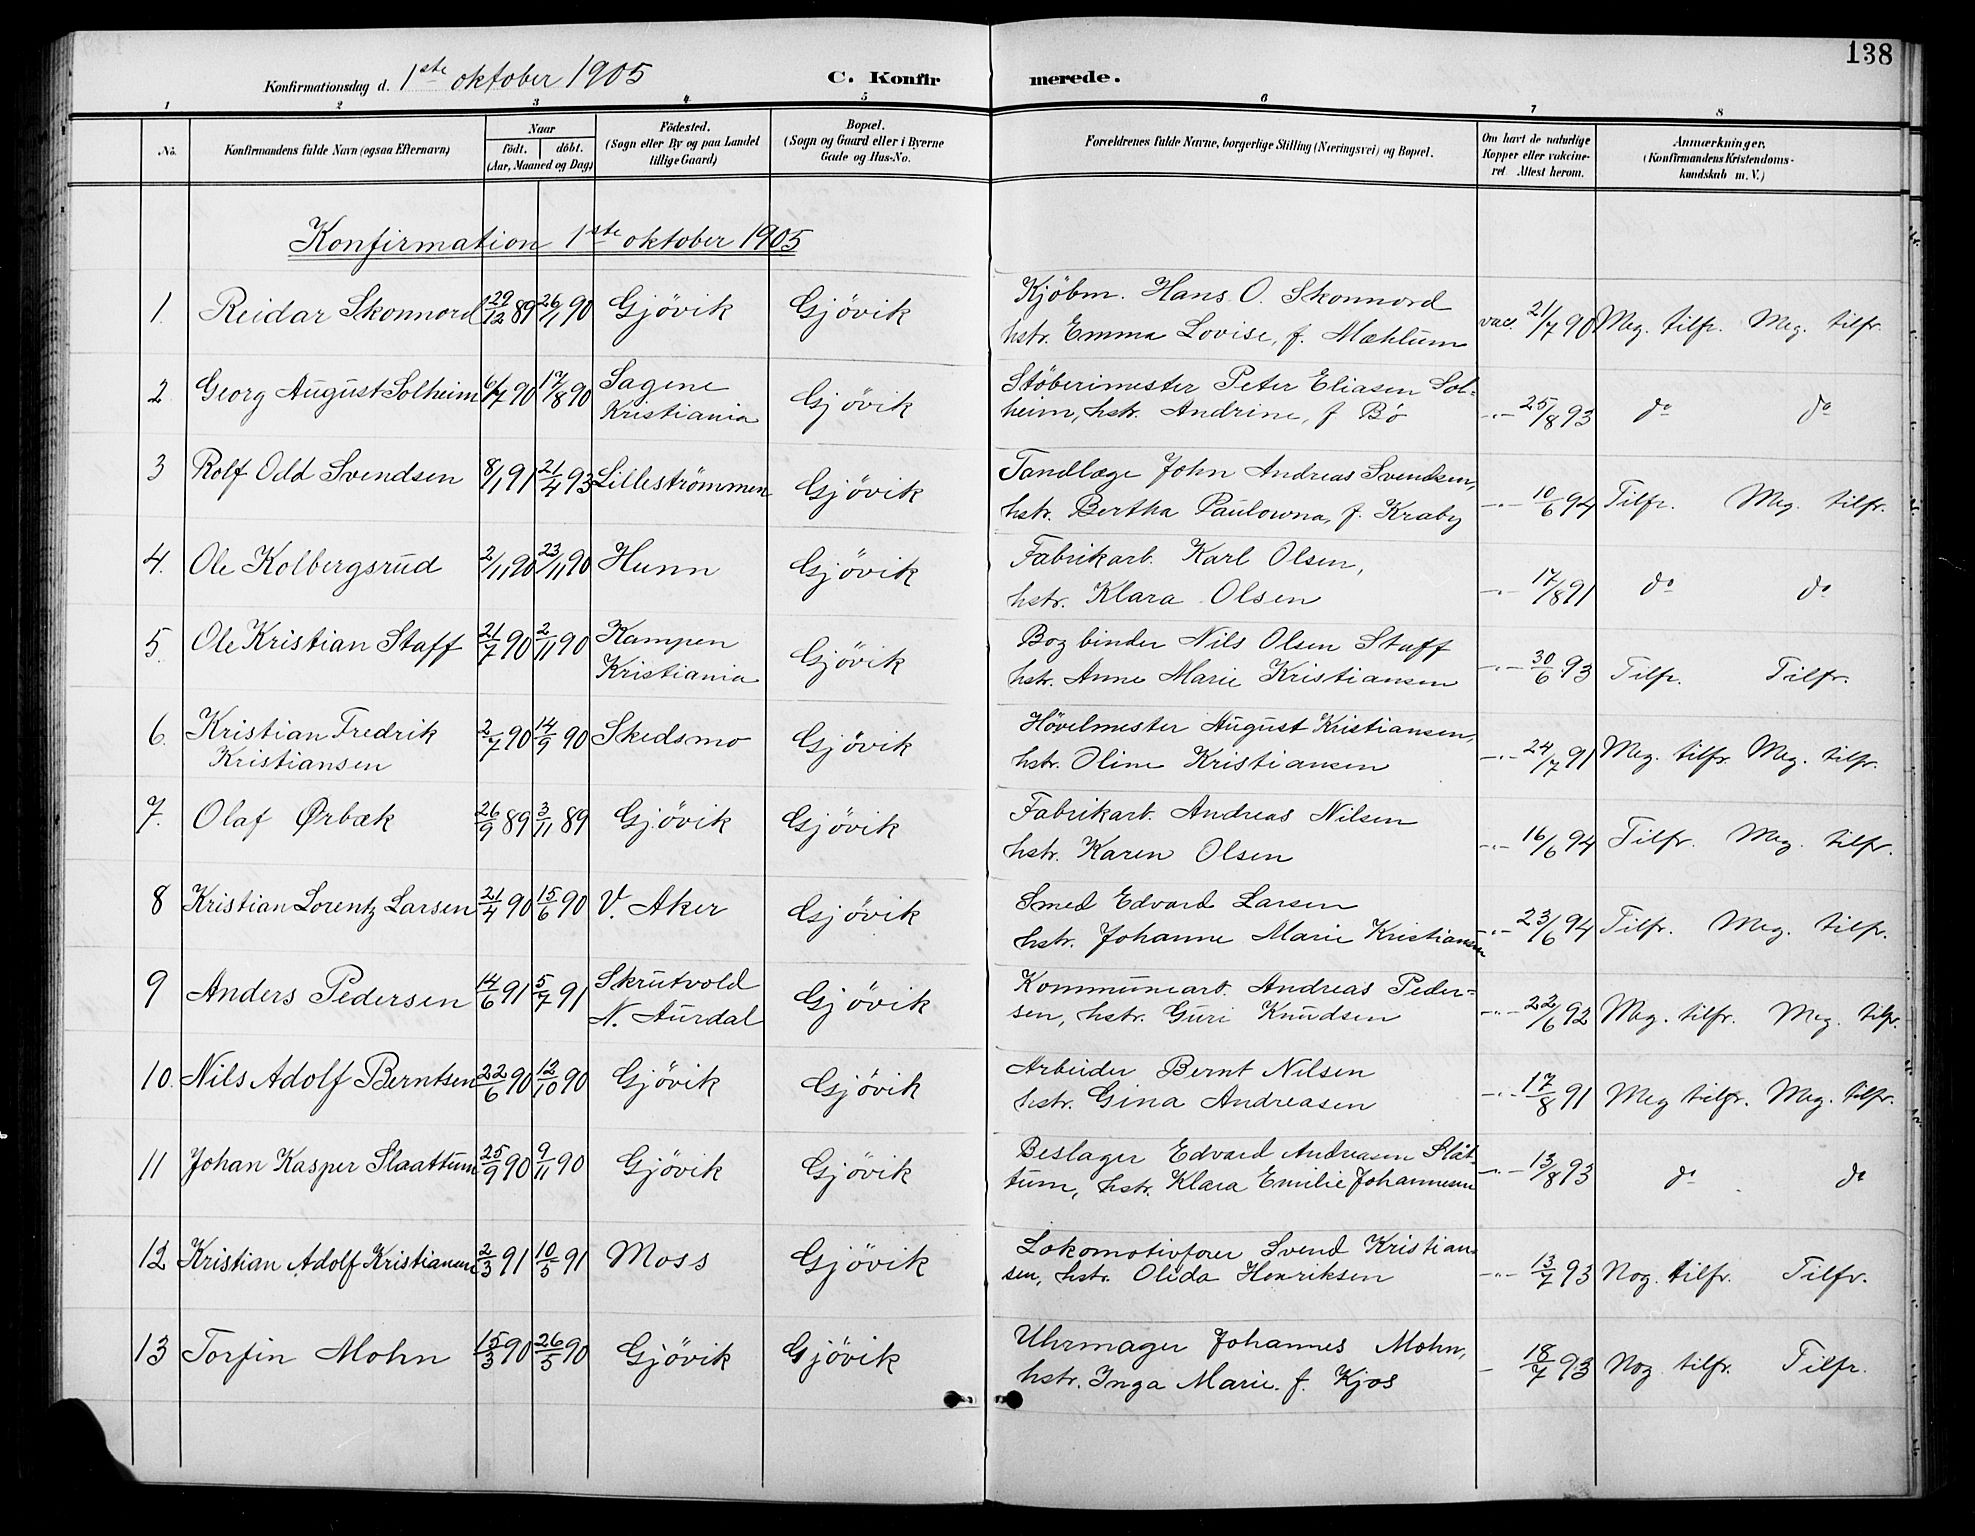 138
Konfirmationsdag d. 1ste oktober 1905 C. Konfirmerede.
1 2 3 4 5 6 7 8
No. Konfirmandens fulde Navn (ogsaa Efternavn) Naar födt. döbt. (Aar, Maaned og Dag) Födested. (Sogn eller By og paa Landet tillige Gaard) Bopæl. (Sogn og Gaard eller i Byerne Gade og Hus-No. Forældrenes fulde Navne, borgerlige Stilling (Næringsvei) og Bopæl. Om havt de naturlige Kopper eller vakcineret Attest herom. Anmærkninger. (Konfirmandens Kristendomskundskab m. V.)
Konfirmation 1ste oktober 1905
1. Reidar Skonnord 29/12 89 26/1 90 Gjövik Gjövik Kjöbm. Hans O. Skonnord
hstr. Emma Lovise, f. Mæhlum vac. 21/7 90 Meg. tilfr. Meg. tilfr.
2 Georg August Solheim 6/7 90 17/8 90 Sagene Kristiania Gjövik Stöberimester Peter Eliasen Sol-
heim, hstr. Andrine, f Bö -"- 25/8 93 do do
3 Rolf Odd Svendsen 8/1 91 21/4 93 Lilleströmmen Gjövik Tandlæge John Andreas Svendsen,
hstr. Bertha Paulowna, f. Kraby -"- 10/6 94 Tilfr. Meg. tilfr.
4. Ole Kolbergsrud 2/11 90 23/11 90 Hunn Gjövik Fabrikarb. Karl Olsen,
hstr. Klara Olsen -"- 17/8 91 do do
5. Ole Kristian Staff 21/7 90 2/11 90 Kampen Kristiania Gjövik Bogbinder Nils Olsen Staff
hstr. Anne Marie Kristiansen -"- 30/6 93 Tilfr. Tilfr.
6. Kristian Fredrik Kristiansen 2/7 90 14/9 90 Skedsmo Gjövik Hövelmester August Kristiansen,
hstr. Oline Kristiansen -"- 24/7 91 Meg. tilfr. Meg. tilfr.
7. Olaf Ørbæk 26/9 89 3/11 89 Gjövik Gjövik Fabrikarb. Andreas Nilsen
hstr. Karen Olsen -"- 16/6 94 Tilfr. Meg. tilfr.
8 Kristian Lorentz Larsen 21/4 90 15/6 90 V. Aker Gjövik Smed Edvard Larsen
hstr. Johanne Marie Kristiansen -"- 23/6 94 Tilfr. Meg. tilfr.
9 Anders Pedersen 14/6 91 5/7 91 Skrutvold N. Aurdal Gjövik Kommunearb. Andreas Peder-
sen, hstr. Guri Knudsen -"- 22/6 92 Meg. tilfr. Meg. tilfr.
10. Nils Adolf Berntsen 22/6 90 12/10 90 Gjövik Gjövik Arbeider Bernt Nilsen
hstr. Gina Andreasen -"- 17/8 91 Meg tilfr. Meg. tilfr.
11 Johan Kasper Slaattum 25/9 90 9/11 90 Gjövik Gjövik Beslager Edvard Andreasen Slåt-
tum, hstr. Klara Emilie Johannesen -"- 13/8 93 do do
12 Kristian Adolf Kristiansen 2/3 91 10/5 91 Moss Gjövik Lokomotivförer Svend Kristian-
sen, hstr. Olida Henriksen -"- 13/7 93 Nog. tilfr. Tilfr.
13 Torfin Mohn 15/3 90 26/5 90 Gjövik Gjövik Uhrmager Johannes Mohn,
hstr. Inga Marie. f. Kjos - 18/7 93 Nog tilfr. Tilfr.